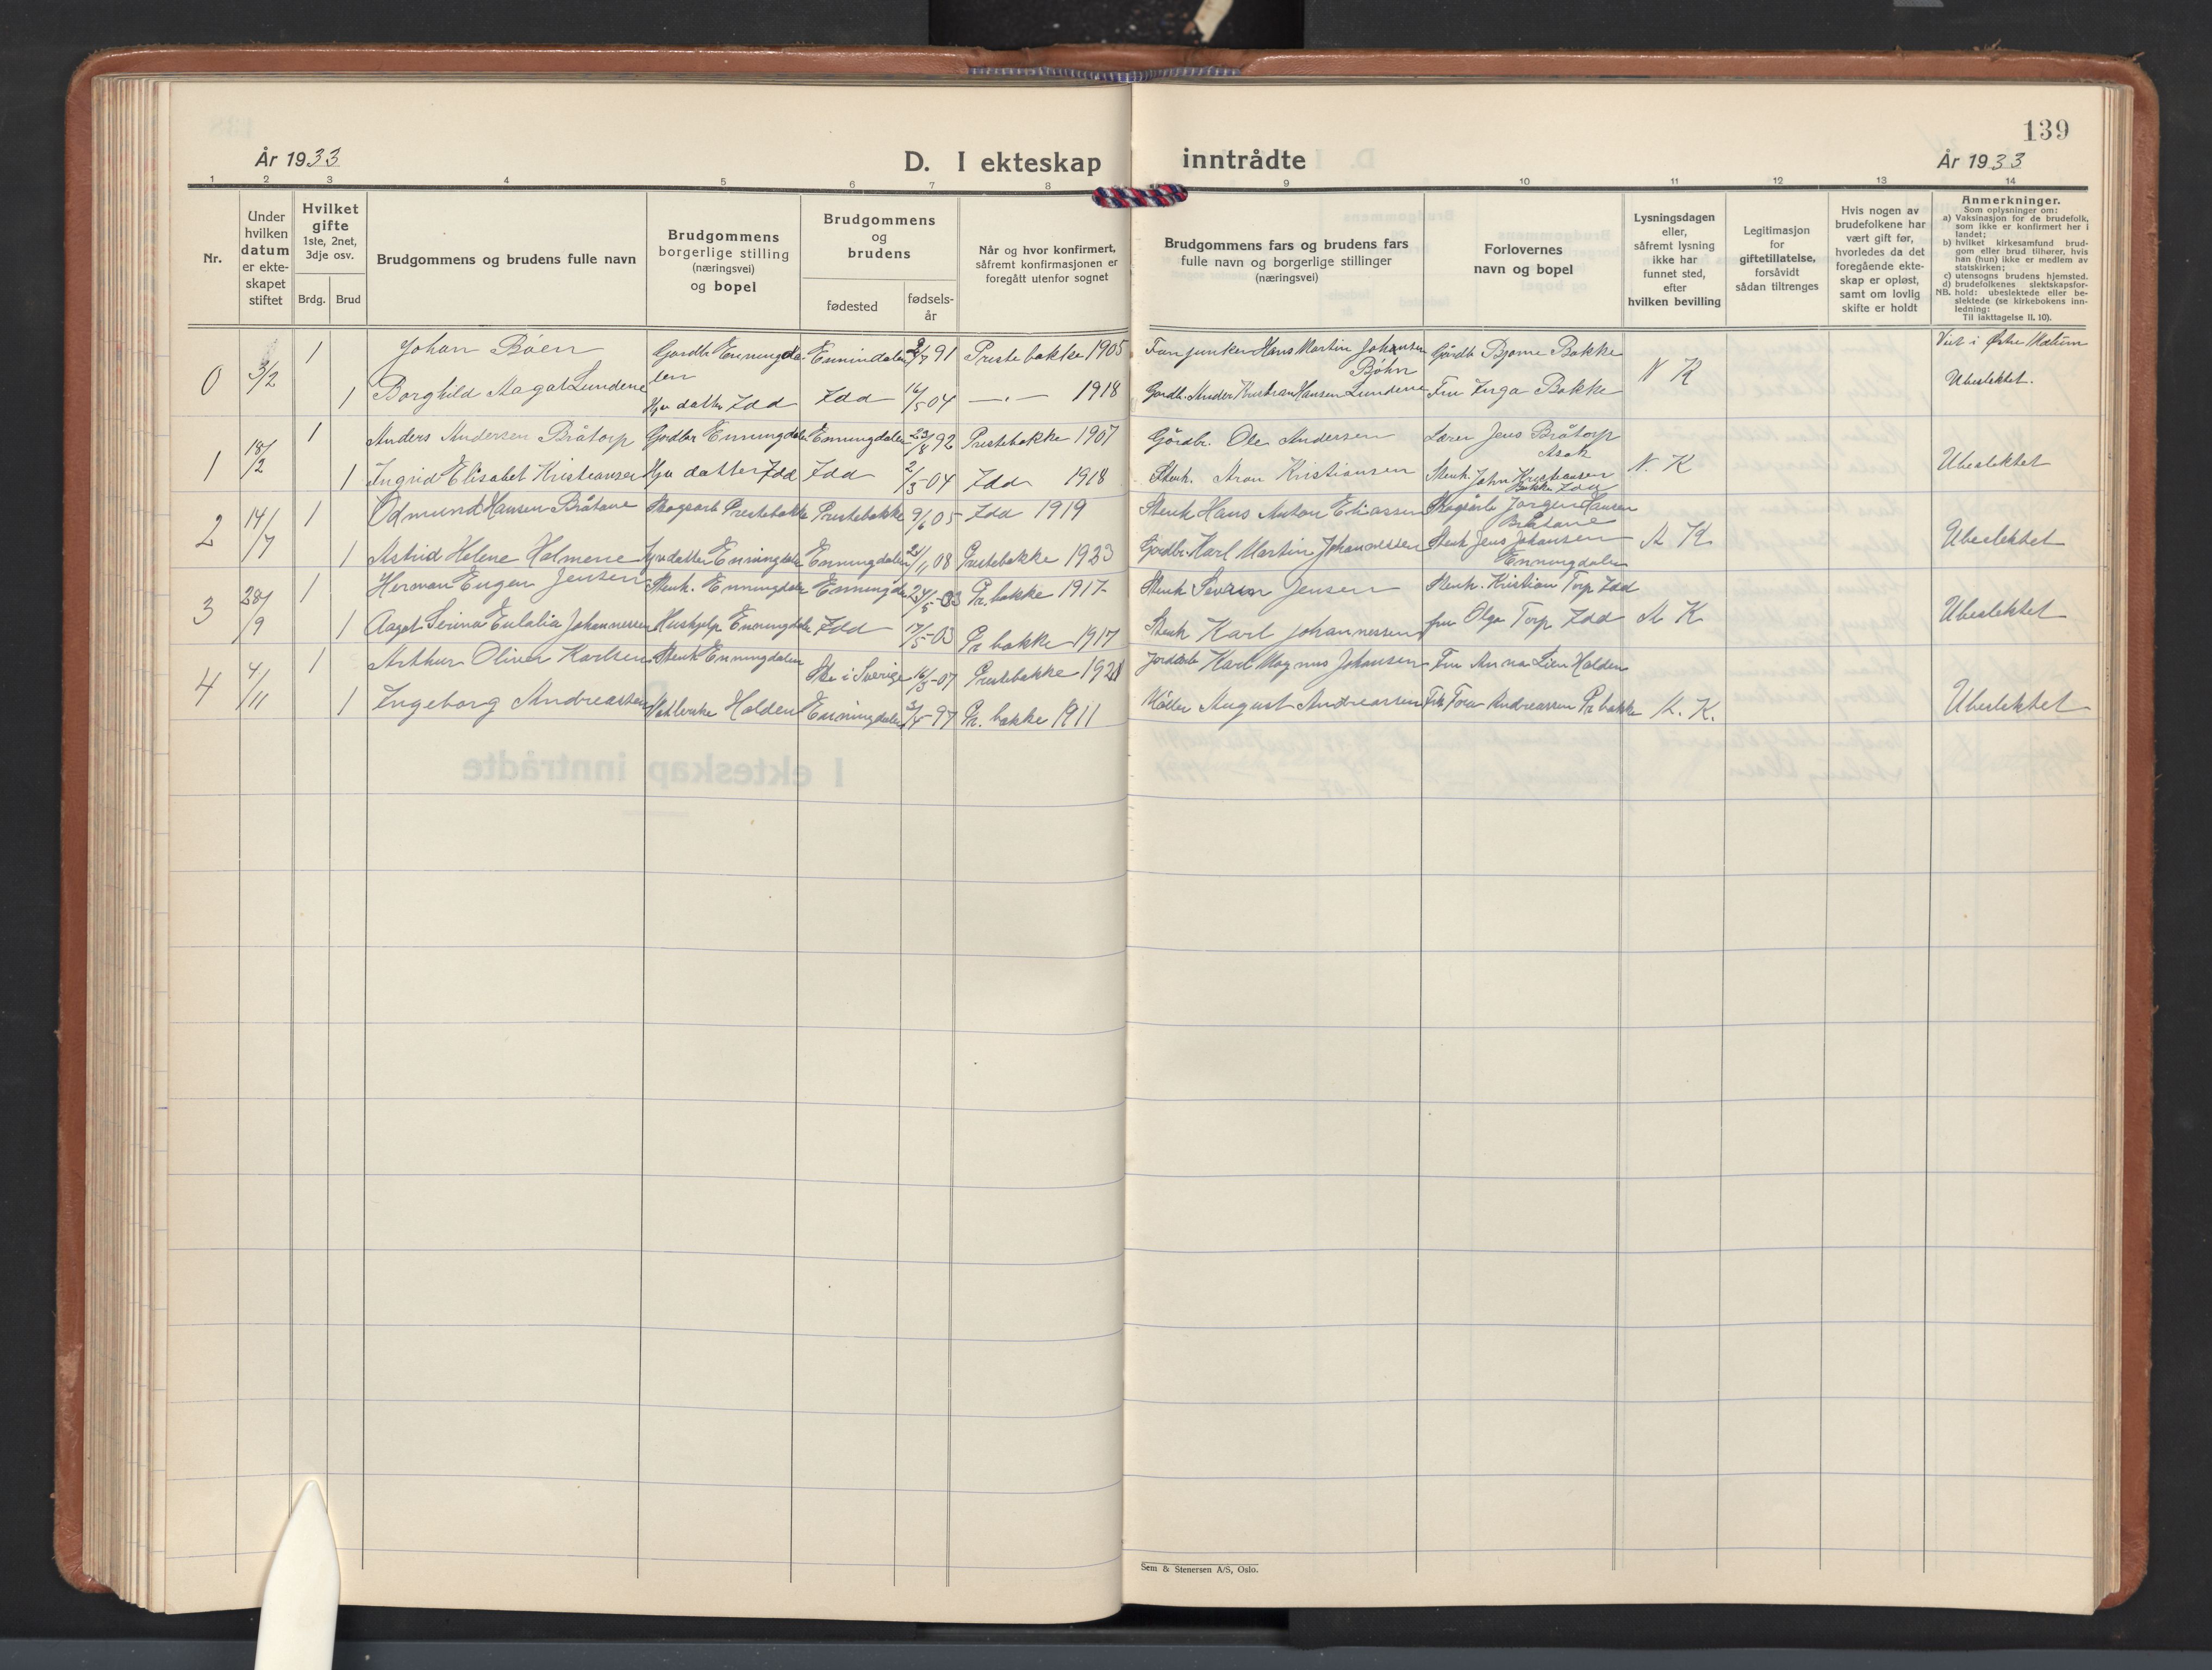 139
År 1933
D. I ekteskap inntrådte
År 1933
1 2 3 4 5 6 7 8 9 10 11 12 13 14
Nr.
Under hvilken datum er ekte-skapet stiftet
Hvilket gifte
1ste, 2net, 3dje osv.
Brdg. Brud
Brudgommens og brudens fulle navn
Brudgommens borgerlige stilling (næringsvei) og bopel
Brudgommens og brudens
fødested
fødsels-år
Når og hvor konfirmert, såfremt konfirmasjonen er foregått utenfor sognet
Brudgommens fars og brudens fars fulle navn og borgerlige stillinger (næringsvei)
Forlovernes navn og bopel
Lysningsdagen eller, såfremt lysning ikke har funnet sted, efter hvilken bevilling
Legitimasjon for giftetillatelse, forsåvidt sådan tiltrenges
Hvis nogen av brudefolkene har vært gift før, hvorledes da det foregående ekte-skap er opløst, samt om lovlig skifte er holdt
Anmerkninger.
Som oplysninger om:
a) Vaksinasjon for de brudefolk, som ikke er konfirmert her i landet;
b) hvilket kirkesamfund brud-gom eller brud tilhører, hvis han (hun) ikke er medlem av statskirken;
c) utensogns brudens hjemsted.
d) brudefolkenes slektskapsfor-
NB. hold: ubeslektede eller be-slektede (se kirkebokens inn-ledning:
Til iakttagelse II. 10).
0 3/2 1 Johan Böen Gardbr Enningdalen Ennindalen 2/7 91 Prestebakke 1905 Fanejunker Hans Martin Johansen Böhn Gårdb Bjarne Bakke N K Viet i Østre Halum
1 Borghild Aagot Lundene Hju datter Idd Idd 16/5 04 — " — 1918 Gardb. Anders Kristian Hansen Lundene Fru Inga Bakke Ubeslektet.
1 18/2 1 Anders Andersen Bråtorp Gardbr Enningdalen Enningdalen 23/8 92 Prestebakke 1907 Gårdbr. Ole Andersen Lærer Jens Bråtorp Asak N. K Ubeslektet
1 Ingrid Elisabet Kristiansen Hju datter Idd Idd 2/3 04 Idd 1918 Stenh. Aron Kristiansen Stenh. John Kristiansen Bakke Idd
2 14/7 1 Odmund Hansen Bråtane Skogsarb Prestebakke Prestebakke 9/6 05 Idd 1919 Stenh Hans Anton Eliassen Skogsarb Jørgen Hansen Bråtane A K Ubeslektet
1 Astrid Helene Holmene Hju datter Enningdalen Enningdalen 21/11 08 Prestebakke 1923 Gardbr. Karl Martin Johannessen Stenh Jens Johansen Enningdalen
3 28/9 1 Herman Eugen Jensen Stenh. Enningdalen Enningd 24/5-03 Pr. bakke 1917 Stenh Severin Jensen Stenh. Kristian Torp Idd A K Ubeslektet
1 Aagot Serina Eulalia Johannessen Hushjelp Enningdalen Idd 17/5-03 Pr bakke 1917 Stenh Karl Johannessen fru Olga Torp Idd
4 4/11 1 Arthur Oliver Karlsen Stenh Enningdalen i Sverige 16/3-07 Prestebakke 1921 Karl Magnus Johansen Fru Anna Lien Halden K. K. Ubeslektet
1 Ingeborg Andreassen Halden Enningdalen 3/5 97 Pr. bakke 1911 Møller August Andreassen Frk Tora Andreassen Pr bakke
Sem & Stenersen A/S, Oslo.